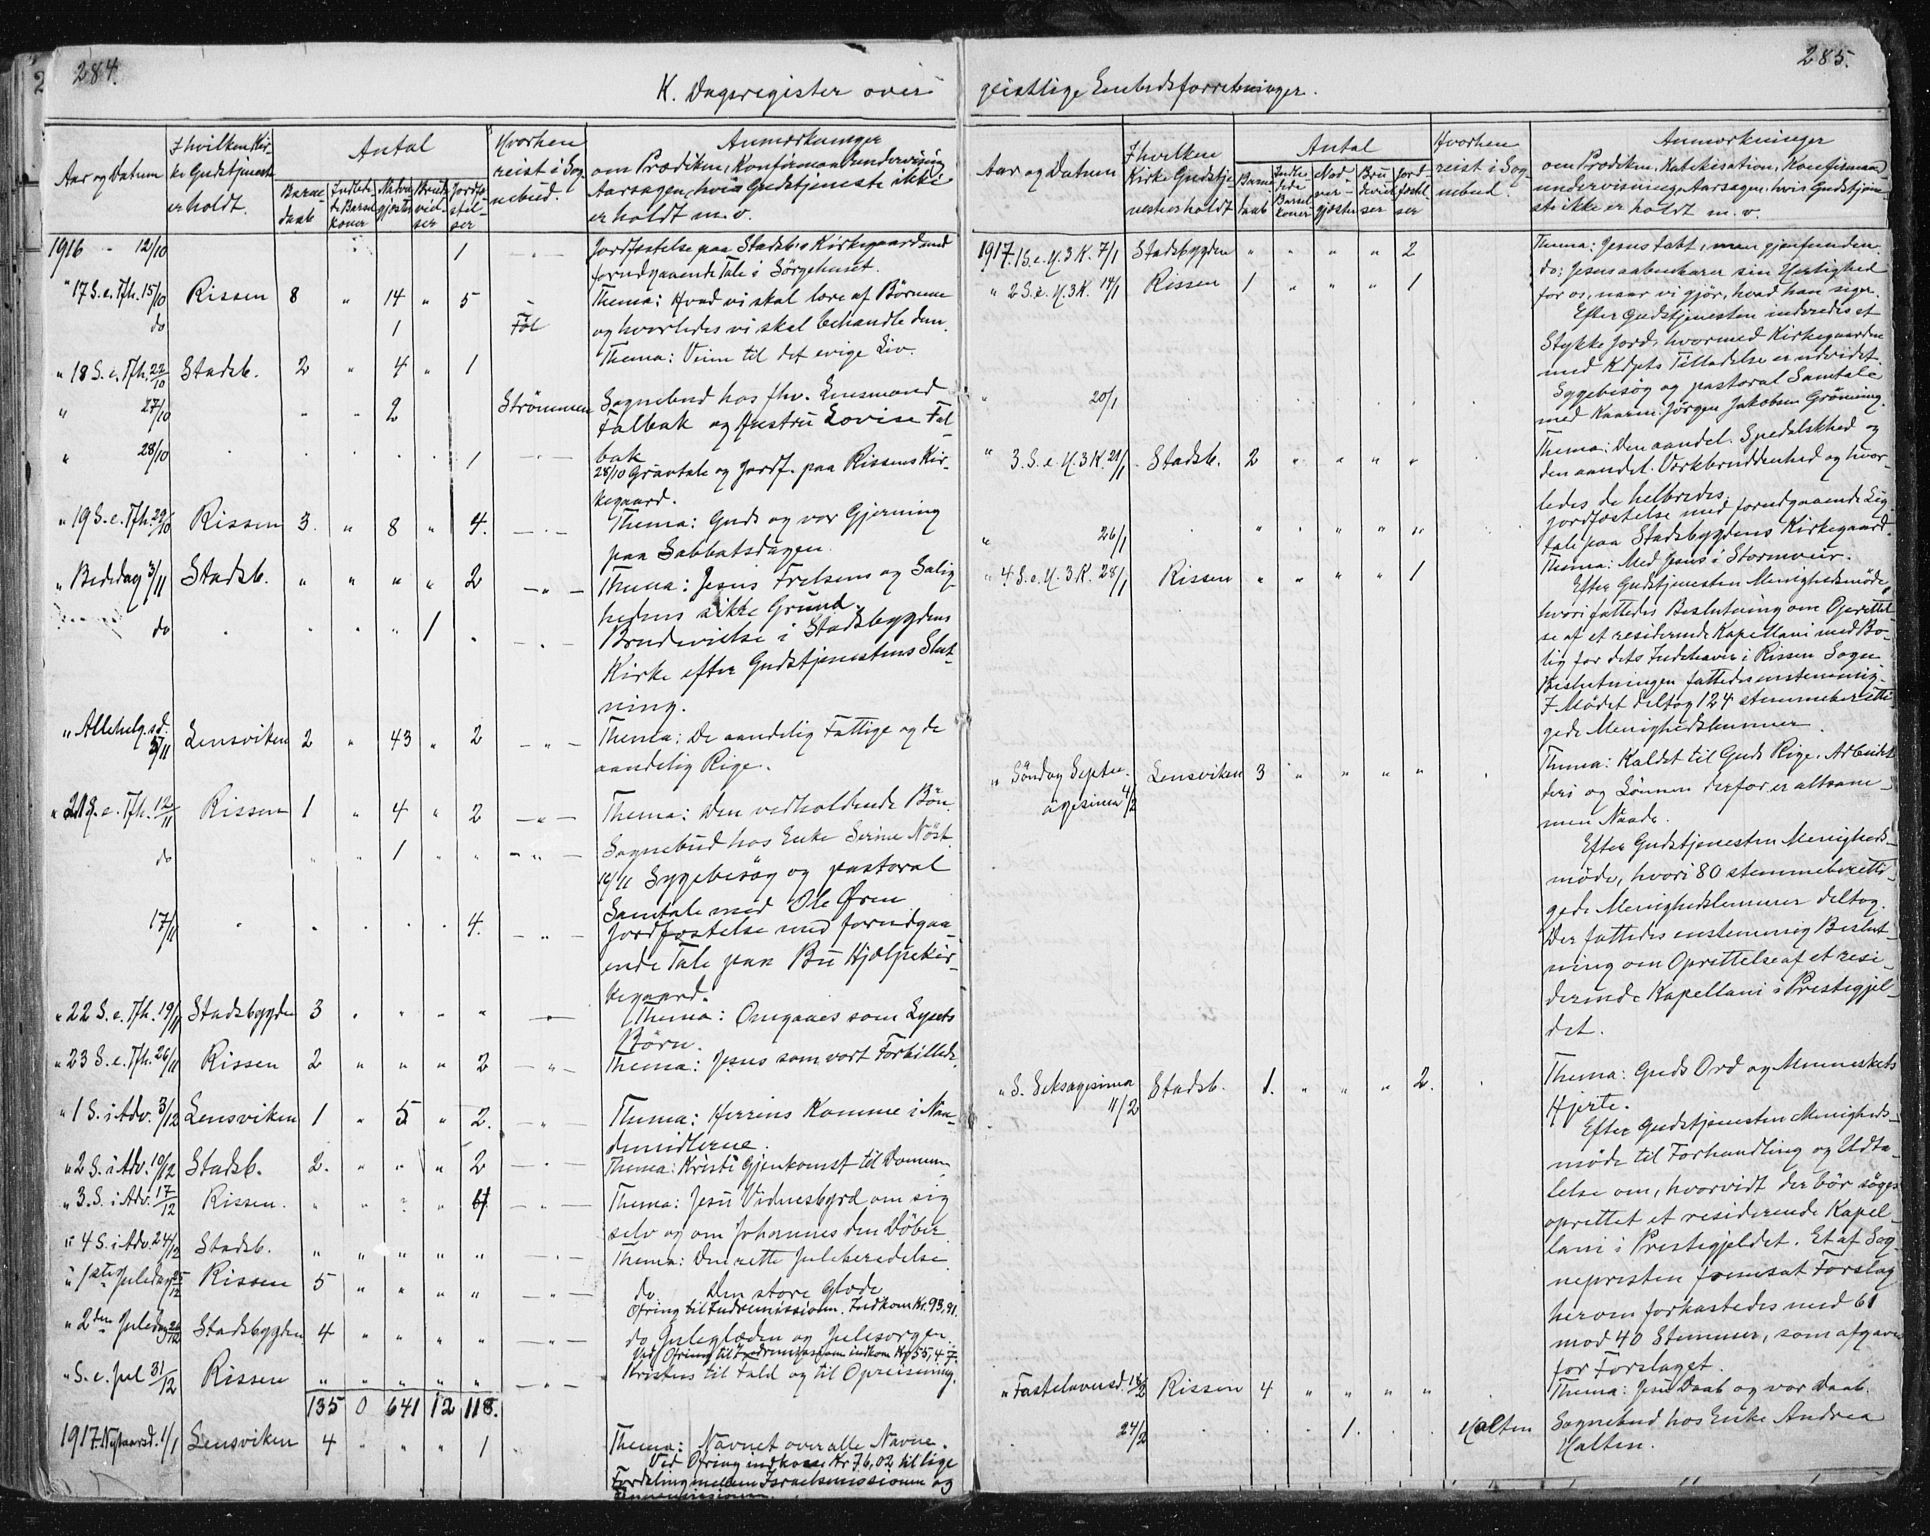 284.
K. Dagsregister over
Aar og Datum
I hvilken Kir-
ke Gudstjeneste
er holdt.
Antal
Barne-
daab
Indled-
te Barsel
koner
Nadver-
gjester
Brude-
viel-
ser
Jordfæ-
stel-
ser
Hvorhen
reist i Sog-
nebud.
Anmærkninger
om Prædiken, Konfirmandundervisning
Aarsagen, hvis Gudstjeneste ikke
er holdt m. v.
1916 - 12/10 " 1 - " - Jordfæstelse paa Stadsb.s Kirkegaard med
forudgaaende Tale i Sørgehuset.
" 17 S. e. Tfh. 15/10 Rissen 8 " 14 " 5 - Thema: Hvad vi skal lære af Børnene
do 1 Føl og hvorledes vi skal behandle dem.
" 18 S. e. Tfh. 22/10 Stadsb. 2 " 4 " 1 Thema: Veien til det evige Liv.
" 27/10 . . 2 Strømmen Sognebud hos fhv. Lensmand
Falbak og Hustru Lovise Fal
bak
" 28/10 . . . . 1 - " - 28/10 Gravtale og Jordf. paa Rissens Kir-
kegaard.
" 19 S. e. Tfh. 29/10 Rissen 3. " 8 " 4. - " - Thema: Guds og vor Gjerning
paa Sabbatsdagen.
" Bededag 3/11 Stadsb. " " " " 2 - " - Thema: Jesus Frelsens og Salig-
hedens sikke Grund.
do . . . " 1 . - " - Brudevielse i Stadsbygdens
Kirke efter Gudstjenestens Slut-
ning.
" Allehelg. sd.
5/11 Lensviken 2 " 43 " 2 - " - Thema: De aandelig Fattige og de
aandelig Rige.
" 21 S. e. Tfh. 12/11 Rissen 1 " 4 " 2 - " - Thema: Den vedholdende Bøn.
do " " 1 " " - " - Sognebud hos Enke Serine Nøst.
16/11 Sygebesøg og pastoral
Samtale med Ole Øren
17/11 . . . . . 4. - " - Jordfæstelse med forudgaa-
ende Tale paa Bu Hjælpekir-
kegaard.
" 22 S. e. Tfh. 19/11 Stadsbygden 3 " " " " - " - Thema: Omgaaes som Lysets
Børn.
" 23 S. e. Tfh. 26/11 Rissen 2 " " " 2 - " - Thema: Jesus som vort Forbillede.
" 1 S. i Adv. 3/12 Lensviken 1 " 5 " 2. - " - Thema: Herrens Komme i Naa-
demidlerne.
" 2 S. i Adv. 10/12 Stadsb. 2. " " " 2 - " - Thema: Kristi Gjenkomst til Dommen
" 3. S. i Adv. 17/12 Rissen. " " " " 4 - " - Thema: Jesu Vidnesbyrd om sig
selv og om Johannes den Døber.
" 4 S. i Adv. 24/12 Stadsb. " " " " " - " - Thema: Den rette Juleberedelse.
" 1ste Juledag 25/12 Rissen 5 " " " " - " - do Den store Glæde.
Ofring til Indremissionen. Indkom Kr. 93,91.
" 2den Juledag 26/12 Stadsbygden 4 " " " " - " - do Juleglæden og Julesorgen.
Ved Ofring til Indremissionen indkom Kr 55,47.
" S. e. Jul 31/12 Rissen " " " " " - " - Kristus til Fald og til Opreisning.
135 0 641 12 118.
1917. Nytaarsd. 1/1 Lensviken 4 " " " 1 . Thema: Navnet over alle Navne.
Ved Ofring indkom Kr 76,02 til lige
Fordeling mellem Israelsmissionen og
285.
geistlige Embedsforretninger.
Aar og Datum
I hvilken
Kirke Gudstje-
neste er holdt
Antal
Barne
daab
Indle-
dede
Barsel
koner
Nad
ver-
gjester
Bru
deviel
ser
Jord
fæstel-
ser
Hvorhen
reist i Sog-
nebud.
Anmærkninger
om Prædiken, Katekisation, Konfirmand
undervisning, Aarsagen, hvis Gudstjene-
ste ikke er holdt m. v.
1917. 1 S. e. H. 3 K. 7/1 Stadsbygden " " " " 2 Thema: Jesus tabt, men gjenfunden.
" 2 S. e. H. 3 K. 14/1 Rissen 1 " " " 1 do: Jesus aabenbarer sin Herlighed
for os, naar vi gjør, hvad han siger.
Efter Gudstjenesten indviedes et
Stykke Jord, hvormed Kirkegaarden
med Kdpts Tilladelse er udvidet.
" 20/1 . . . . . . Sygebesøg og pastoral Samtale
med Kaarm. Jørgen Jakobsen Grønning.
" 3. S. e. H. 3 K. 21/1 Stadsb. 2 " " " " Thema: Den aandel. Spedalskhed og
den aandel. Værkbruddenhed og hvor-
ledes de helbredes.
" 26/1 . " " " " " . Jordfæstelse med forudgaaende Lig-
tale paa Stadsbygdens Kirkegaard.
" 4 S. e. H. 3 K. 28/1 Rissen " " " " 1 Thema: Med Jesus i Stormveir.
Efter Gudstjenesten Menighedsmøde,
hvori fattedes Beslutning om Oprettel-
se af et residerende Kapellani med Bo-
lig for dets Indehaver i Rissen Sogn
Beslutningen fattedes enstemmig.
I Mødet deltog 124 stemmeberetti-
gede Menighedslemmer.
" Søndag Septu-
agesima 4/2 Lensviken 3 " " " " . Thema: Kaldet til Guds Rige. Arbeidet
deri og Lønnen derfor er altsam-
men Naade.
Efter Gudstjenesten Menigheds-
møde, hvori 80 stemmeberetti-
gede Menighedslemmer deltog.
Der fattedes enstemmig Beslut-
ning om Oprettelse af et resi-
derende Kapellani i Prestegjel-
det.
" S. Seksagesima
11/2 Stadsb. 1. " " " 2. . Thema: Guds Ord og Menneskets
Hjerte.
Efter Gudstjenesten Menigheds-
møde til Forhandling og Udta-
lelse om, hvorvidt der bør søges
oprettet et residerende Kapel-
lani i Prestegjeldet. Et af Sog-
nepresten fremsat Forslag
herom forkastedes med 61
mod 40 Stemmer, som afgaves
for Forslaget.
" Fastelavnsd. 18/2 Rissen 4 " " " " . Thema: Jesu Daab og vor Daab.
. 24/2 . . . 1. . . Halten Sognebud hos Enke Andrea
Halten.